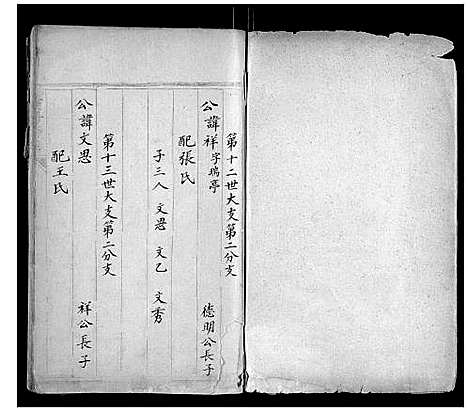 第十二世大支第二分支
公諱祥 字瑞亭 德明公長子
配張氏
子三人 文恩 文乙 文秀
第十三世大支第二分支
公諱文恩 祥公長子
配王氏